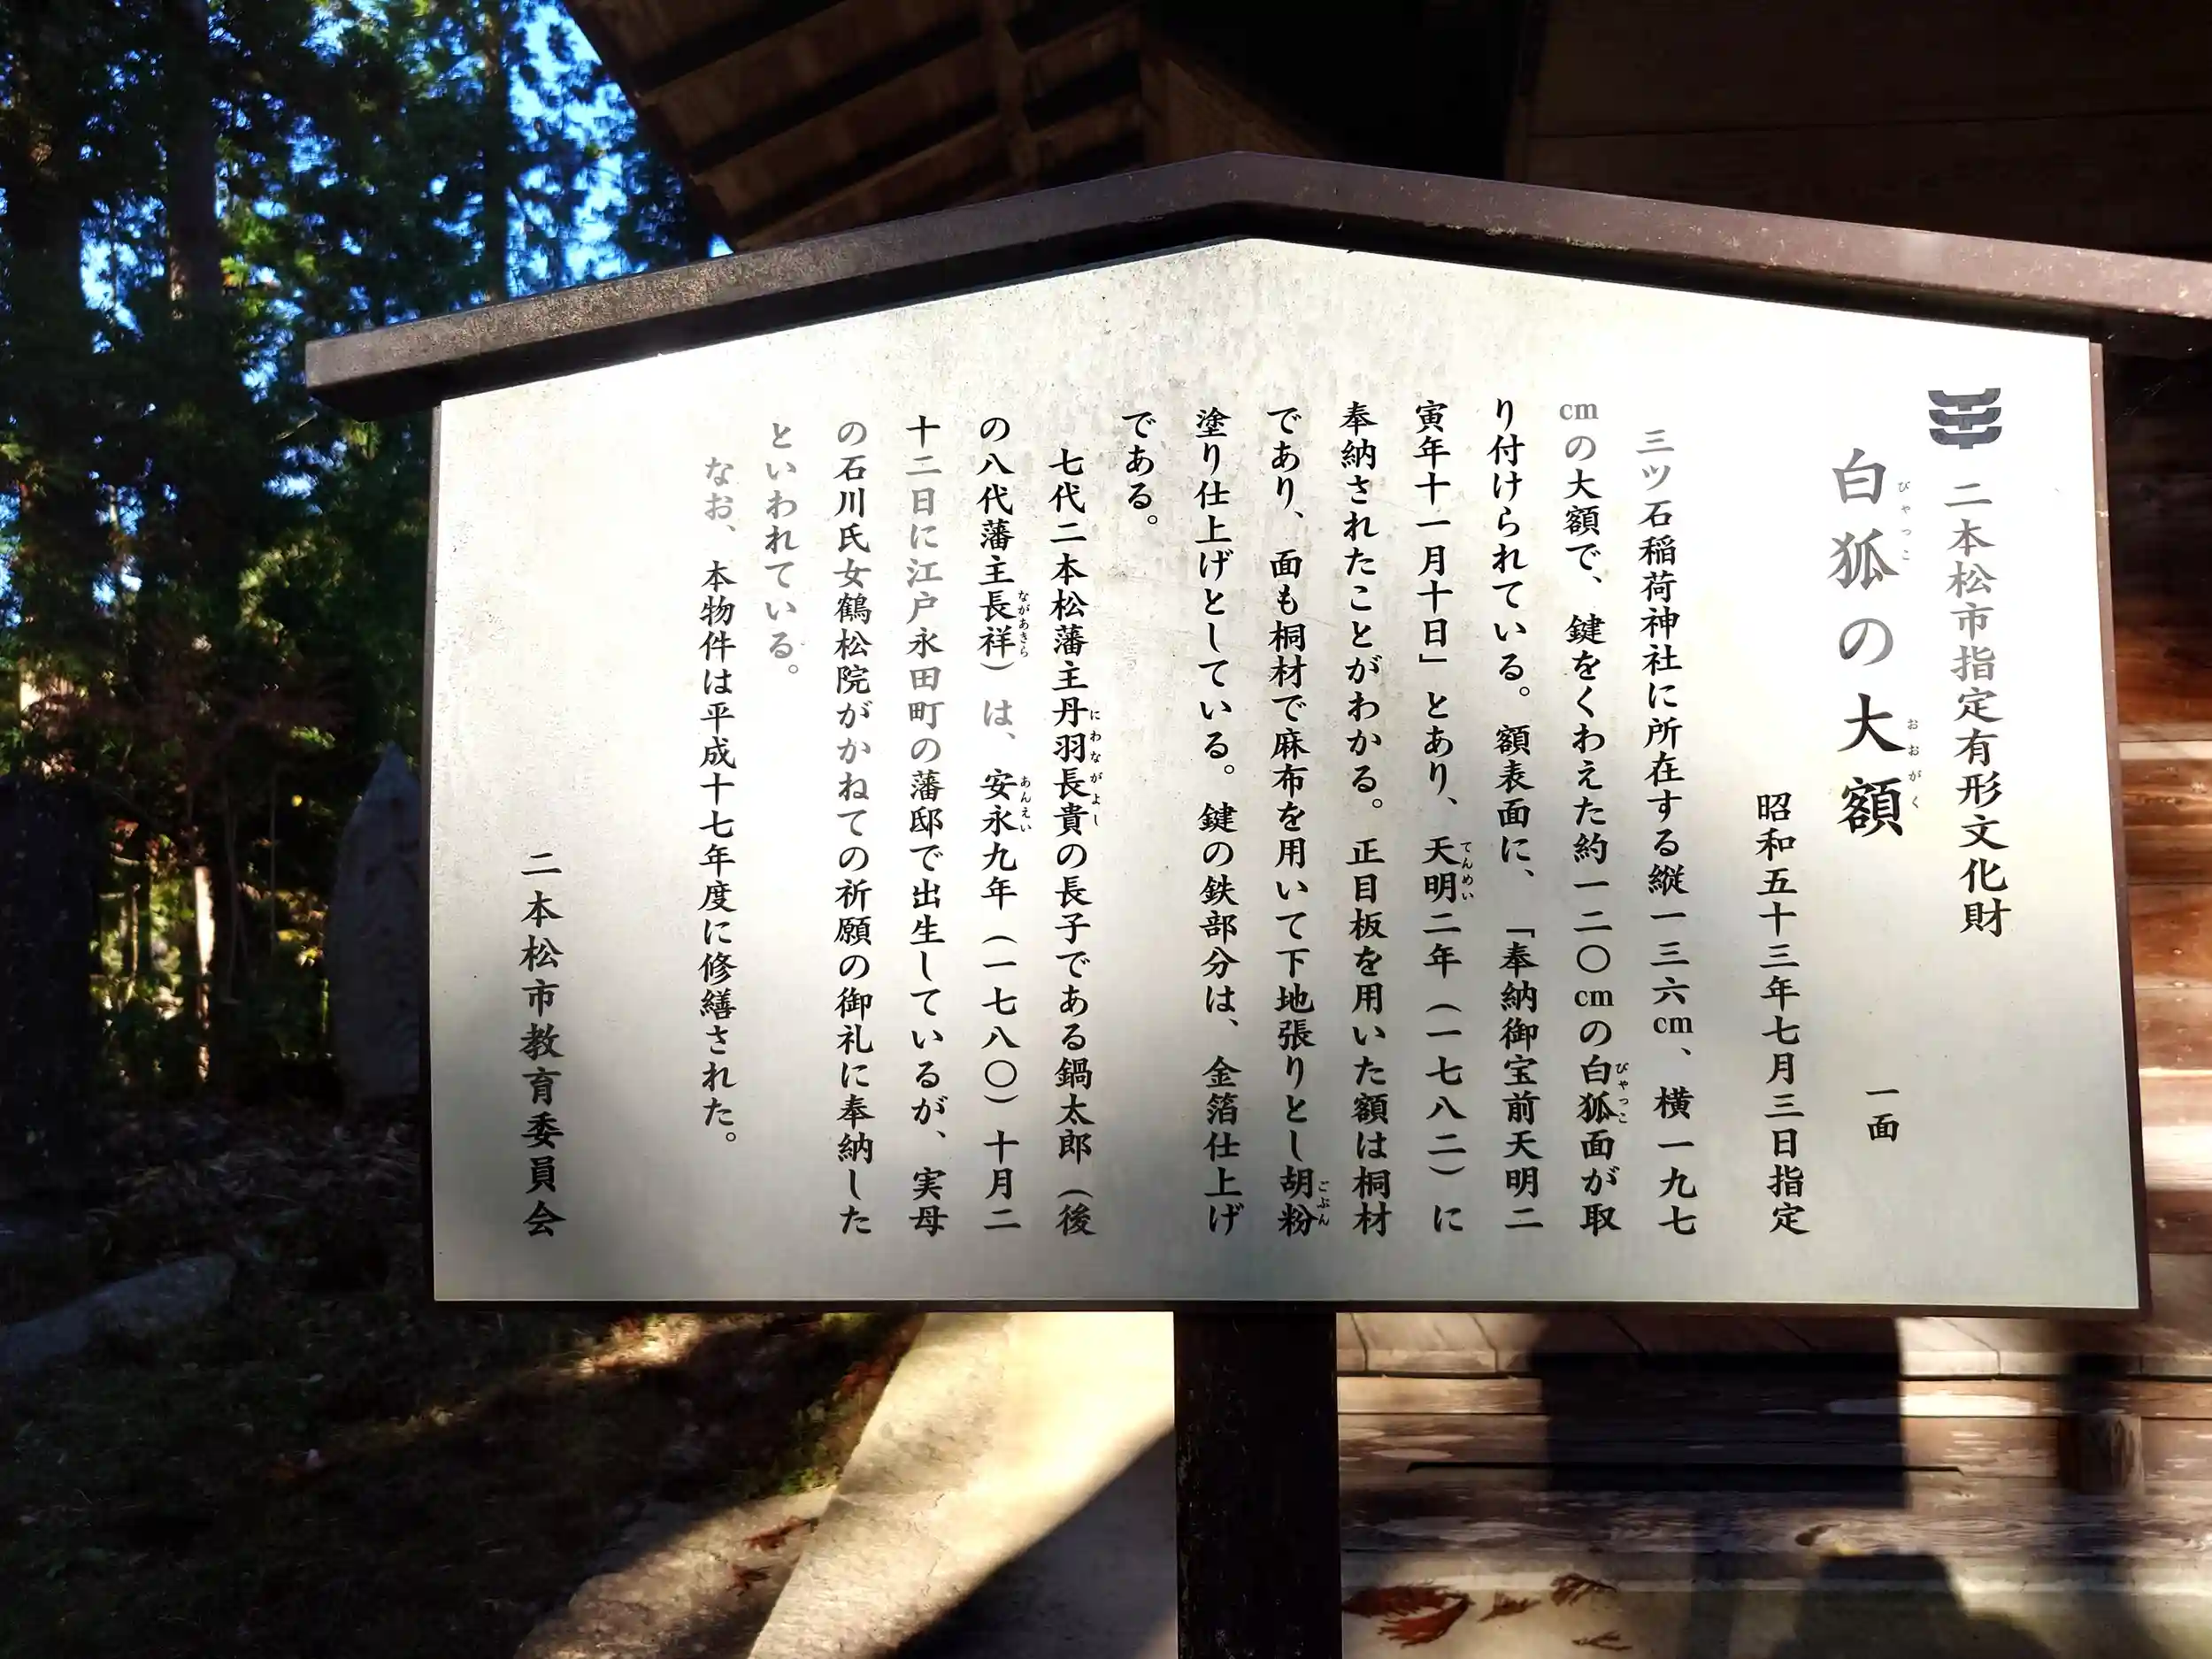 二本松市指定有形文化財
白狐の大額　一面
びゃっこ　おおがく
昭和五十三年七月三日指定
三ツ石稲荷神社に所在する縦一三六cm、横一九七
cmの大額で、鍵をくわえた約一二〇cmの白狐面が取
びゃっこ
り付けられている。額表面に、「奉納御宝前天明二
寅年十一月十日」とあり、天明二年（一七八二）に
てんめい
奉納されたことがわかる。正目板を用いた額は桐材
であり、面も桐材で麻布を用いて下地張りとし胡粉
ごふん
塗り仕上げとしている。鍵の鉄部分は、金箔仕上げ
である。
七代二本松藩主丹羽長貴の長子である鍋太郎（後
にわながよし
の八代藩主長祥）は、安永九年（一七八〇）十月二
ながあきら　あんえい
十二日に江戸永田町の藩邸で出生しているが、実母
の石川氏女鶴松院がかねての祈願の御礼に奉納した
といわれている。
なお、本物件は平成十七年度に修繕された。
二本松市教育委員会